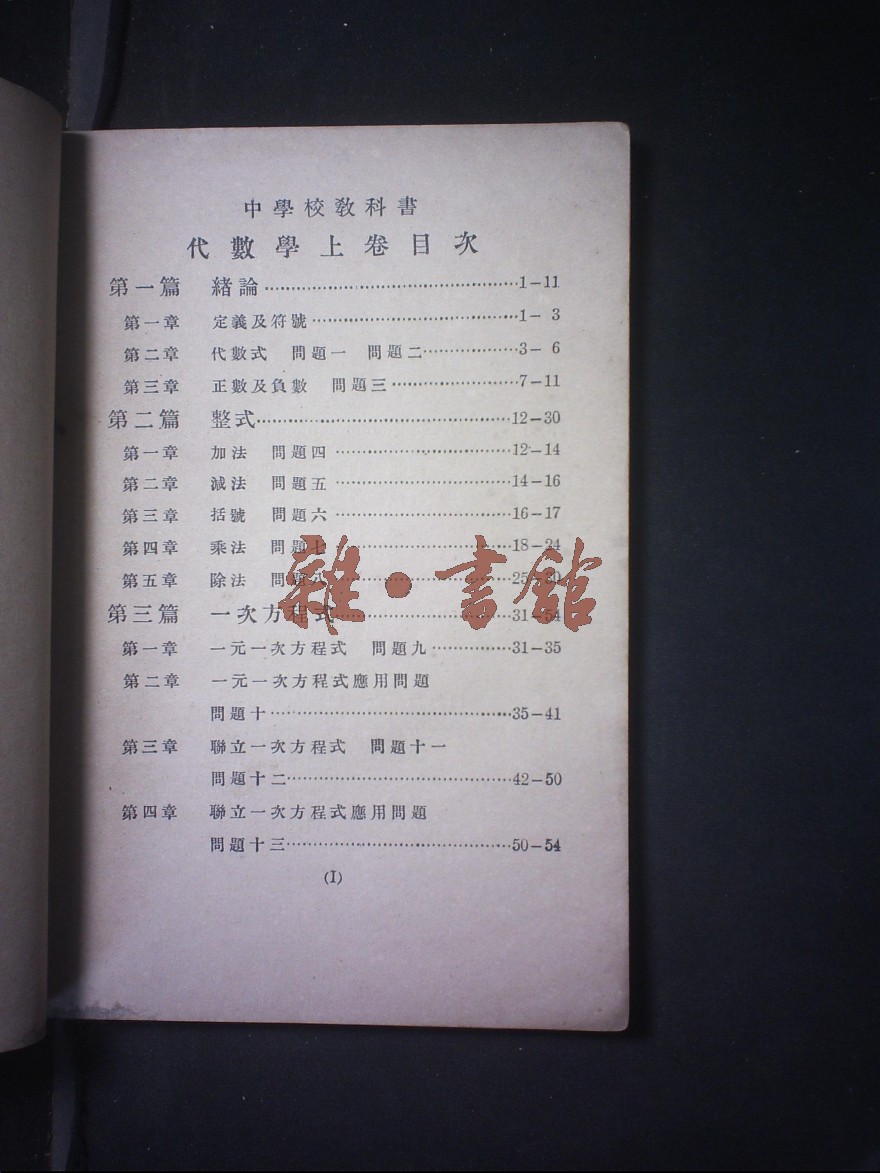 中學校敎科書
代數學上卷目次
第一篇 緒論……………………………………1–11
第一章 定義及符號……………………………1– 3
第二章 代數式 問題一 問題二……………3– 6
第三章 正數及負數 問題三…………………7–11
第二篇 整式……………………………………12–30
第一章 加法 問題四…………………………12–14
第二章 減法 問題五…………………………14–16
第三章 括號 問題六…………………………16–17
第四章 乘法 問題七…………………………18–24
第五章 除法 問題八…………………………25–30
第三篇 一次方程式……………………………31–54
第一章 一元一次方程式 問題九……………31–35
第二章 一元一次方程式應用問題
問題十……………………………………35–41
第三章 聯立一次方程式 問題十一
問題十二…………………………………42–50
第四章 聯立一次方程式應用問題
問題十三…………………………………50–54
(I)
雜·書館